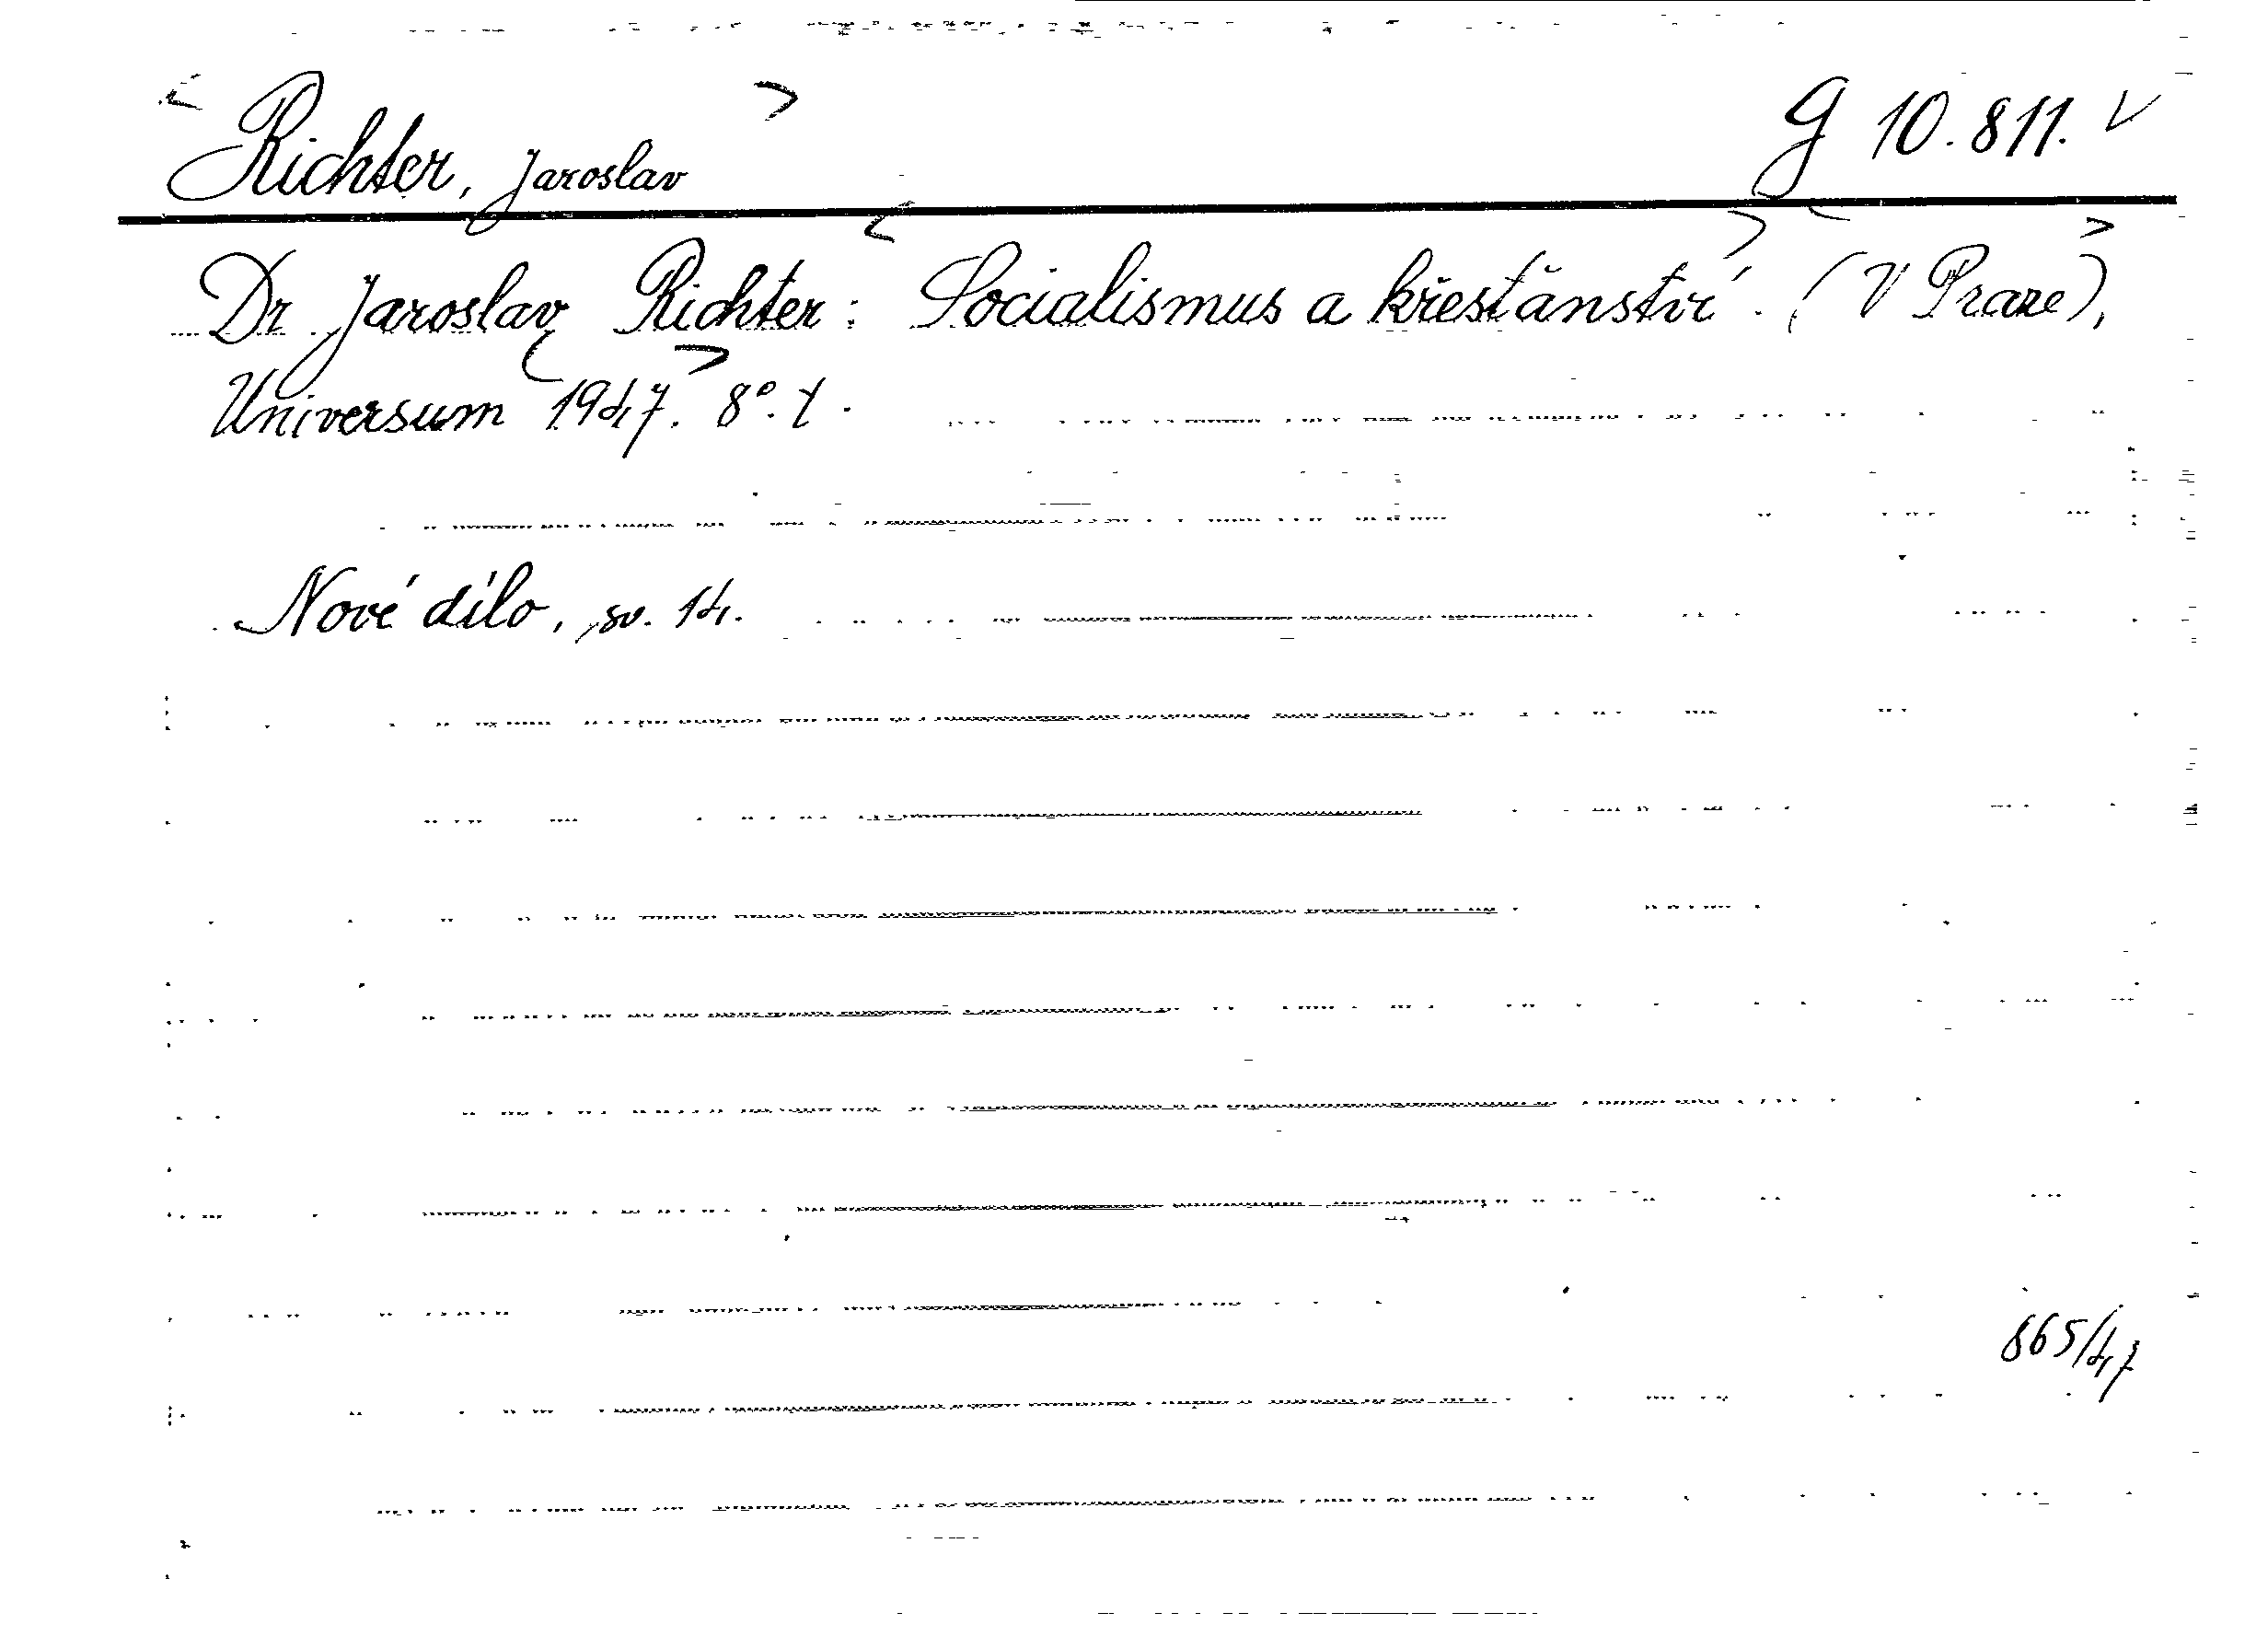 Richter, Jaroslav
g 10.811. V
Dr Jaroslav Richter: Socialismus a křesťanství. (V Praze),
Universum 1947. 8°.
Nové dílo, sv. 14.
865/47